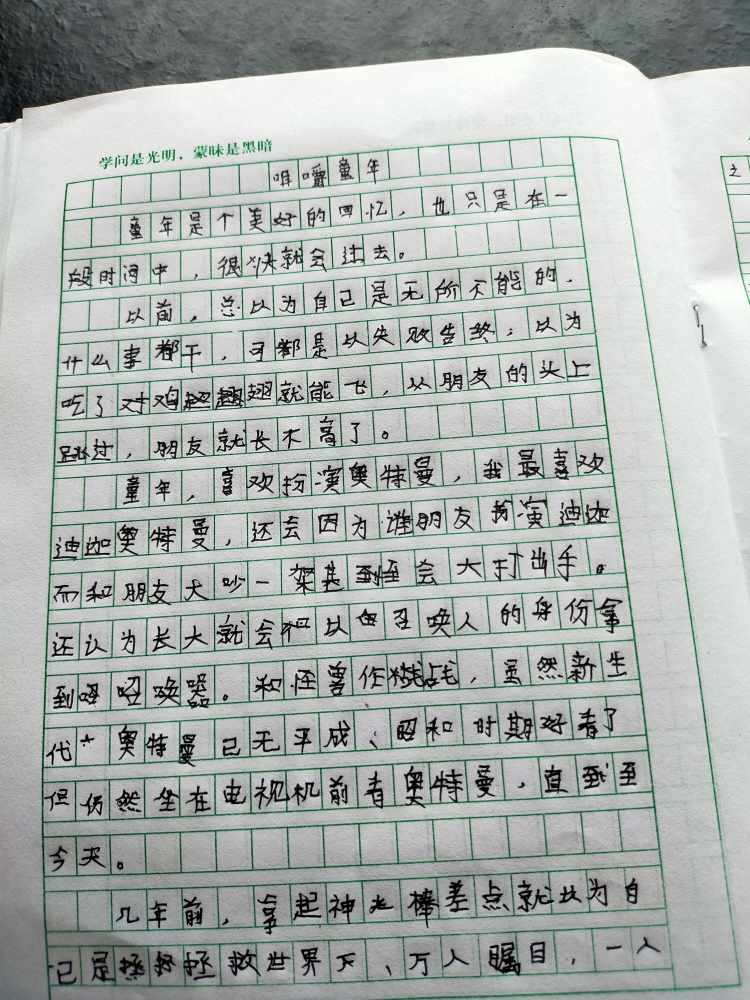 学问是光明，蒙昧是黑暗
咀嚼童年
童年是个美好的回忆，也只是在一
段时间中，很快就会过去。
以前，总以为自己是无所不能的，
什么事都干，可都是以失败告终；以为
吃了对鸡翅就能飞，从朋友的头上
跳过，朋友就长不高了。
童年，喜欢扮演奥特曼，我最喜欢
迪迦奥特曼，还会因为谁朋友扮演迪迦
而和朋友大吵一架甚至会大打出手。
还认为长大就会以召唤人的身份拿
到召唤器。和怪兽作战，虽然新生
代奥特曼已无平成、昭和时期好看了
但仍然坐在电视机前看奥特曼，直到至
今天。
几年前，拿起神光棒差点就以为自
己是拯救世界，万人瞩目，一人
之